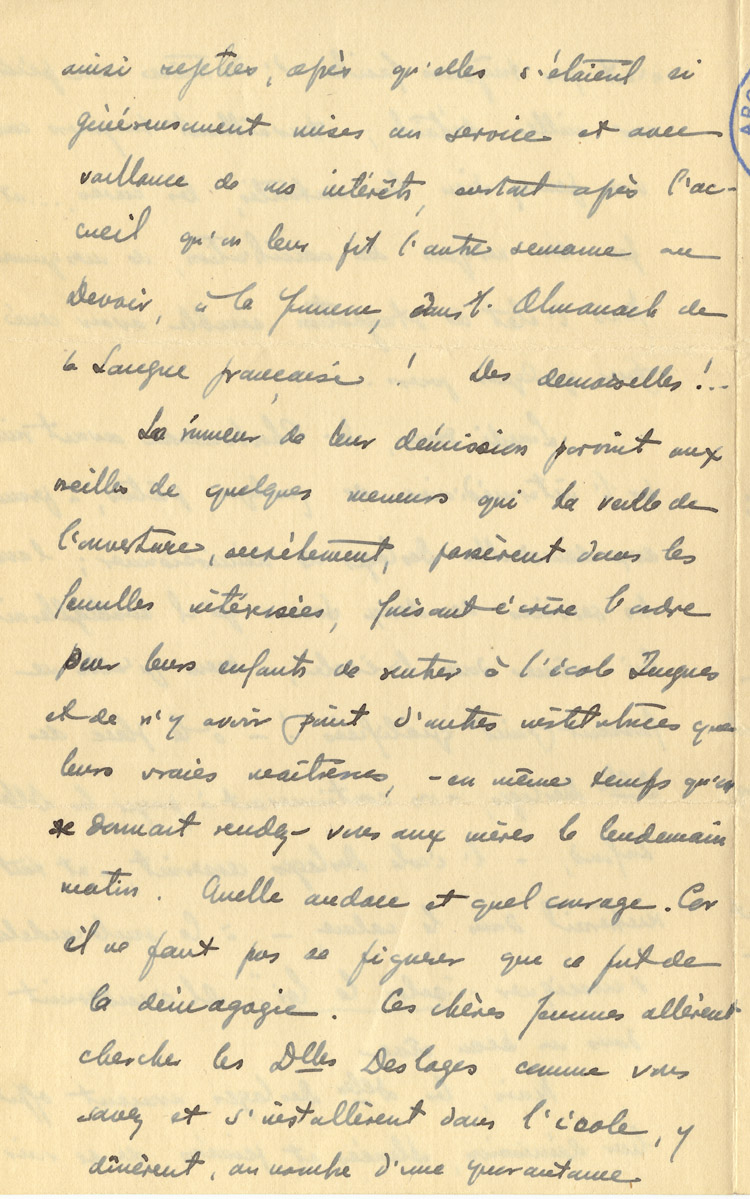 ainsi rejetées, après qu'elles s'étaient si
généreusement mises au service et avec
vaillance de nos intérêts, surtout après l'ac-
cueil qu'on leur fit l'autre semaine au
Devoir, à la Presse, Almanach de
la Langue française ! Des demoiselles !..
La rumeur de leur démission parvint aux
oreilles de quelques meneurs qui la veille de
l'ouverture, secrètement, passèrent dans les
familles intéressées, faisant écrire l'ordre
pour leurs enfants de rentrer à l'école Jacques
et de n'y avoir point d'autres institutrices que
leurs vraies maîtresses, - en même temps qu'on
se donnait rendez-vous aux mères le lendemain
matin. Quelle audace et quel courage. Car
il ne faut pas se figurer que ce fut de
la démagogie. Ces chères femmes allèrent
chercher les Dlles Desloges comme vous
savez et s'installèrent dans l'école, y
dînèrent, au nombre d'une quarantaine